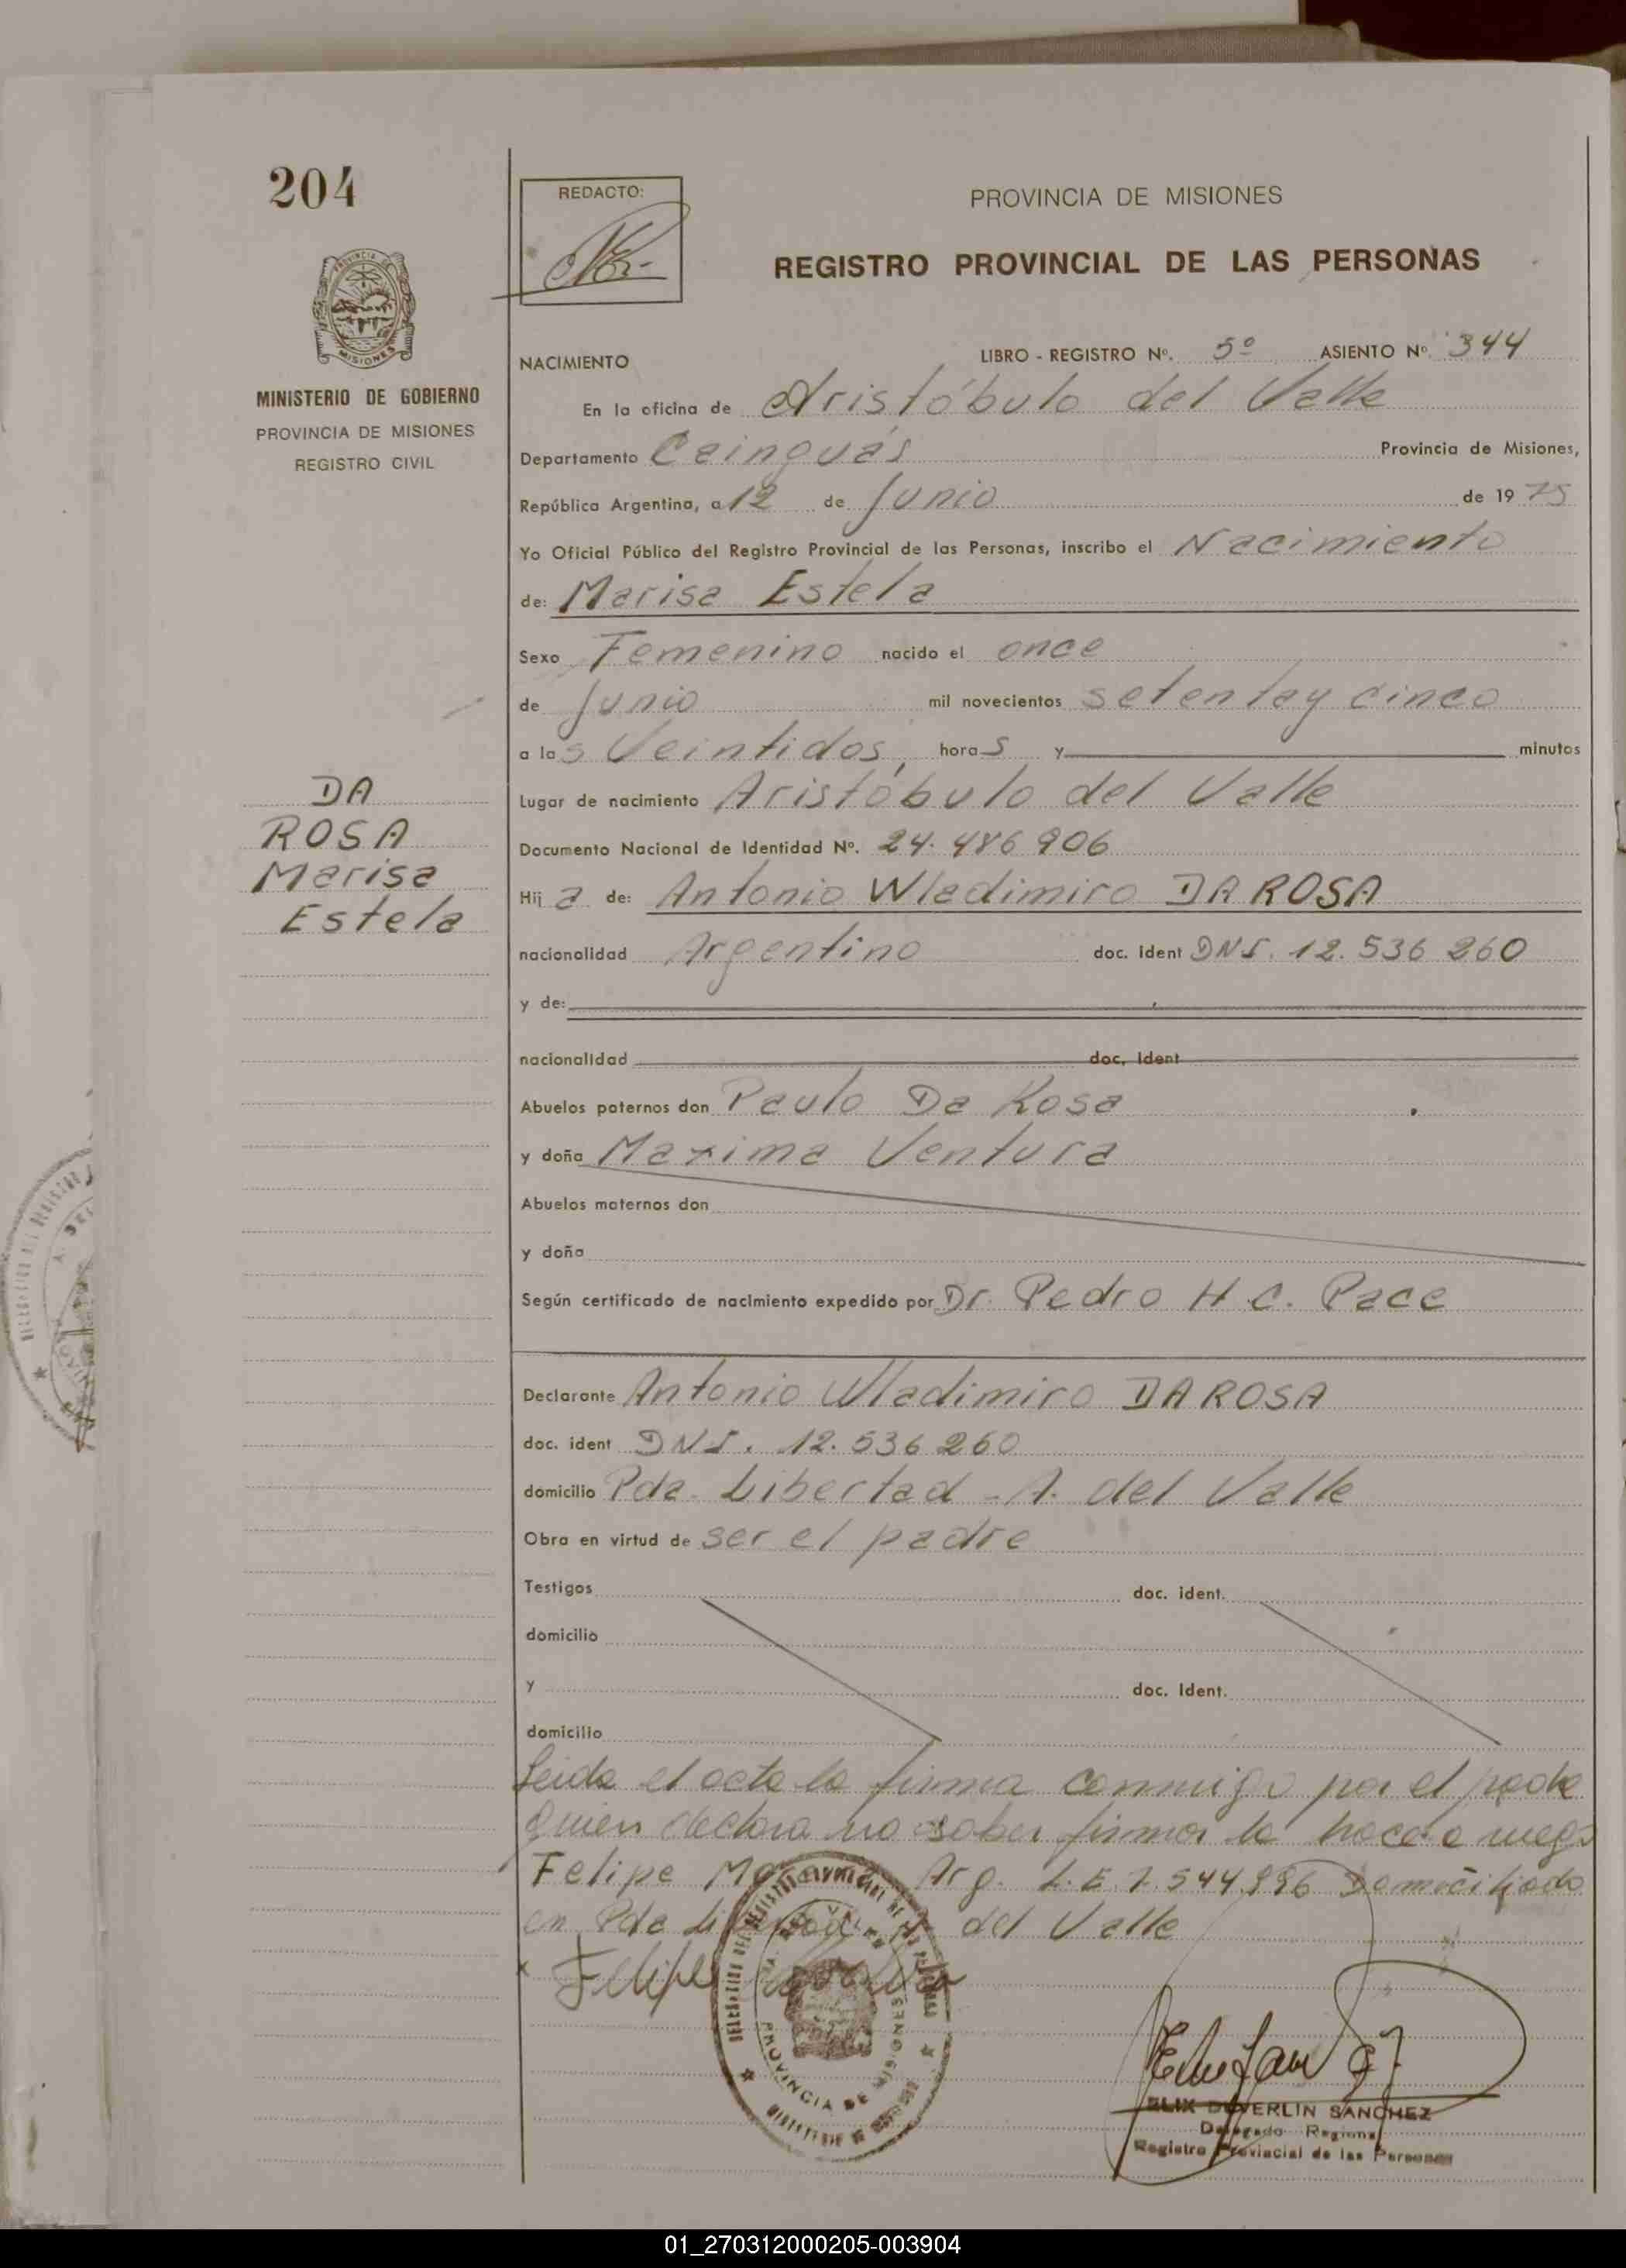 204
REDACTO:
PROVINCIA DE MISIONES
REGISTRO PROVINCIAL DE LAS PERSONAS
MISIONES
MINISTERIO DE GOBIERNO
PROVINCIA DE MISIONES
REGISTRO CIVIL
NACIMIENTO LIBRO - REGISTRO Nº. 5º ASIENTO Nº. 344
En la oficina de Aristóbulo del Valle
Departamento Cainguás Provincia de Misiones,
República Argentina, a 12 de Junio de 1975
Yo Oficial Público del Registro Provincial de las Personas, inscribo el Nacimiento
de: Marisa Estela
Sexo Femenino nacido el once
de Junio mil novecientos setenta y cinco
a las Veintidos, horas y minutos
DA
ROSA
Marisa
Estela
Lugar de nacimiento Aristóbulo del Valle
Documento Nacional de Identidad Nº. 24.486 906
Hija de: Antonio Wladimiro DA ROSA
nacionalidad Argentino doc. ident DNI. 12.536 260
y de:
nacionalidad doc. ident
Abuelos paternos don Paulo Da Rosa
y doña Maxima Ventura
Abuelos maternos don
y doña
Según certificado de nacimiento expedido por Dr. Pedro H. C. Pace
Declarante Antonio Wladimiro DA ROSA
doc. ident DNI. 12.536 260
domicilio Pda. Libertad - A. del Valle
Obra en virtud de ser el padre
Testigos doc. ident.
domicilio
y doc. Ident.
domicilio
Leida el acta la firma conmigo por el padre
quien declara no saber firmar lo hace a ruego
Felipe Arg. L.E. 7.544.996 Domiciliado
en Pda del Valle
x Felipe
PROVINCIA DE MISIONES
DEVERLIN SANCHEZ
Delegado Regional
Registro Provincial de las Personas
01_270312000205-003904